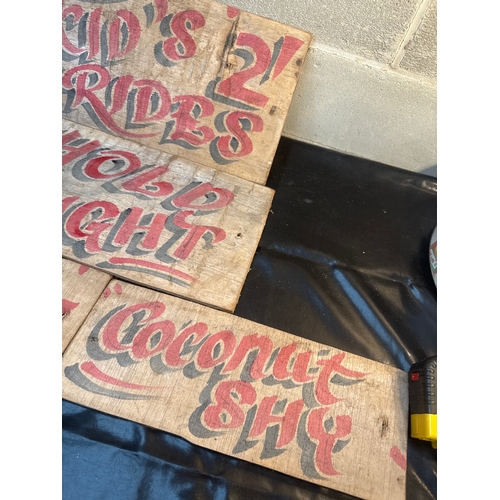 CID'S 2'
RIDES
HOLD
IGHT
Coconut
SHY